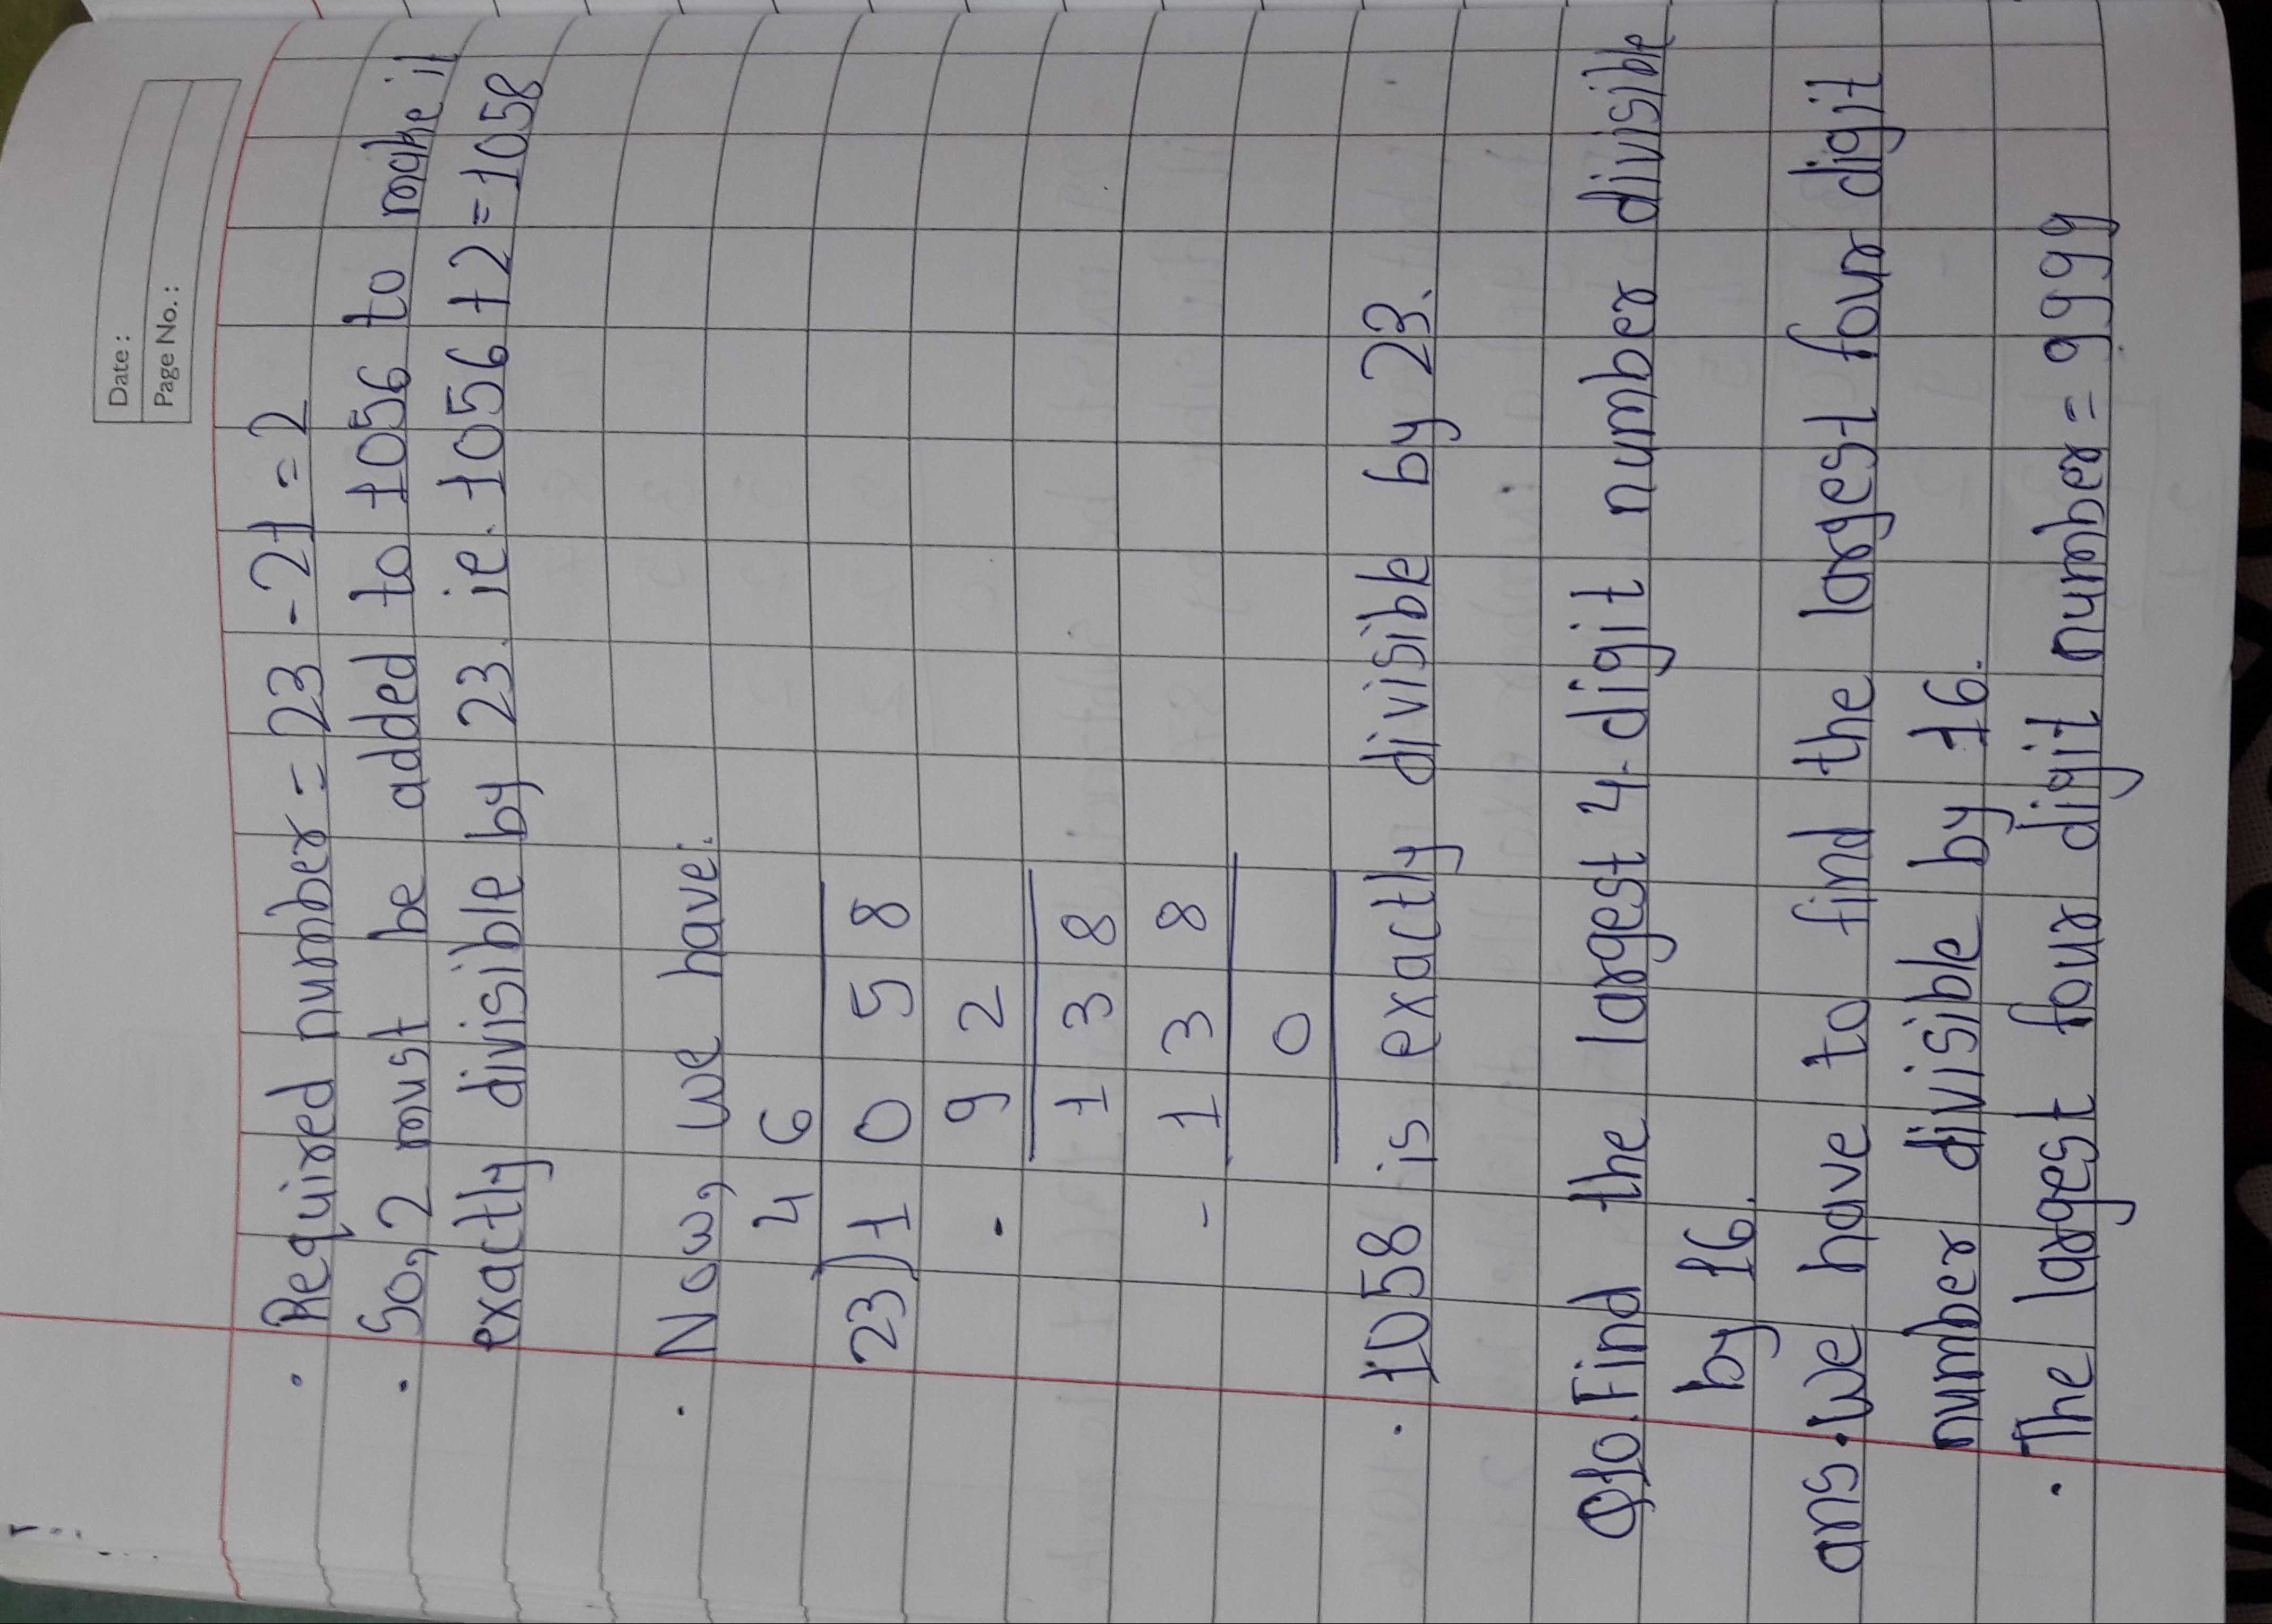 Date:
Page No.:
• Required number = 23 - 21 = 2
• So, 2 must be added to 1056 to make it
exactly divisible by 23. ie. 1056 + 2 = 1058
• Now, we have:
4 6
23)1 0 5 8
- 9 2
1 3 8
- 1 3 8
0
• 1058 is exactly divisible by 23.
Q10. Find the largest 4-digit number divisible
by 16.
ans • We have to find the largest four digit
number divisible by 16.
• The largest four digit number = 9999